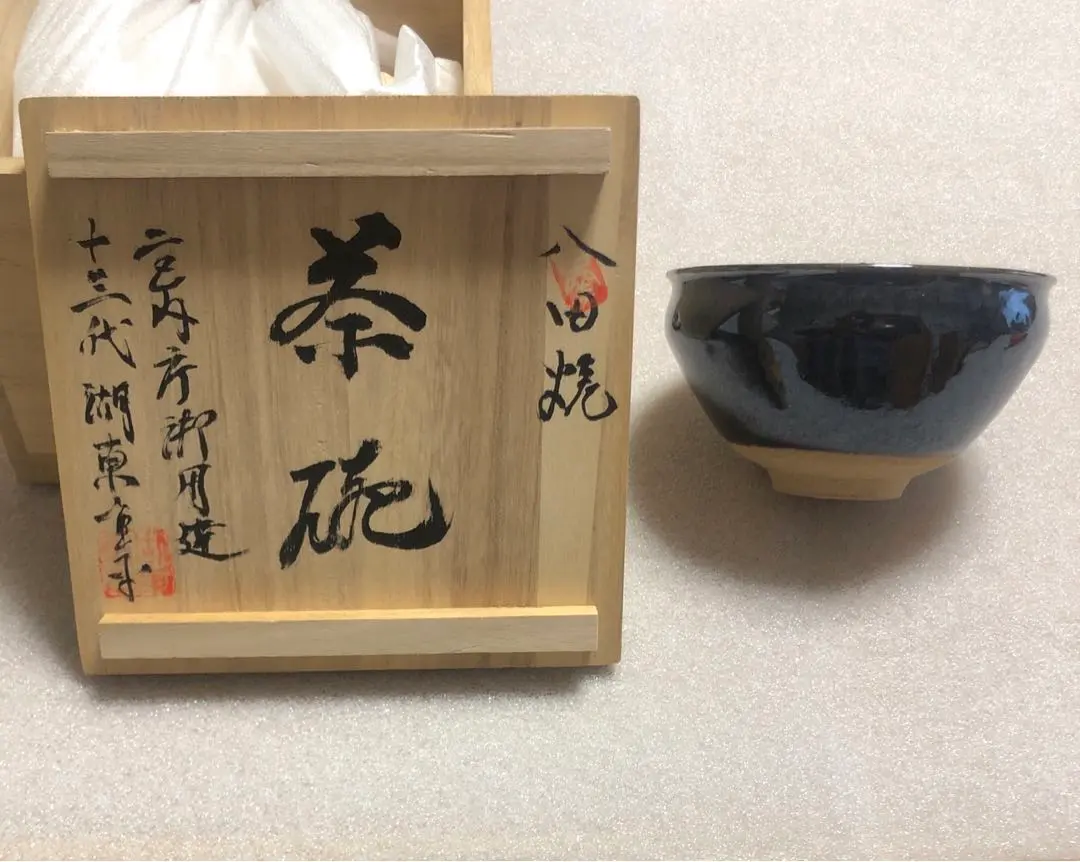 八田焼
茶碗
宮内庁御用達
十三代 湖東